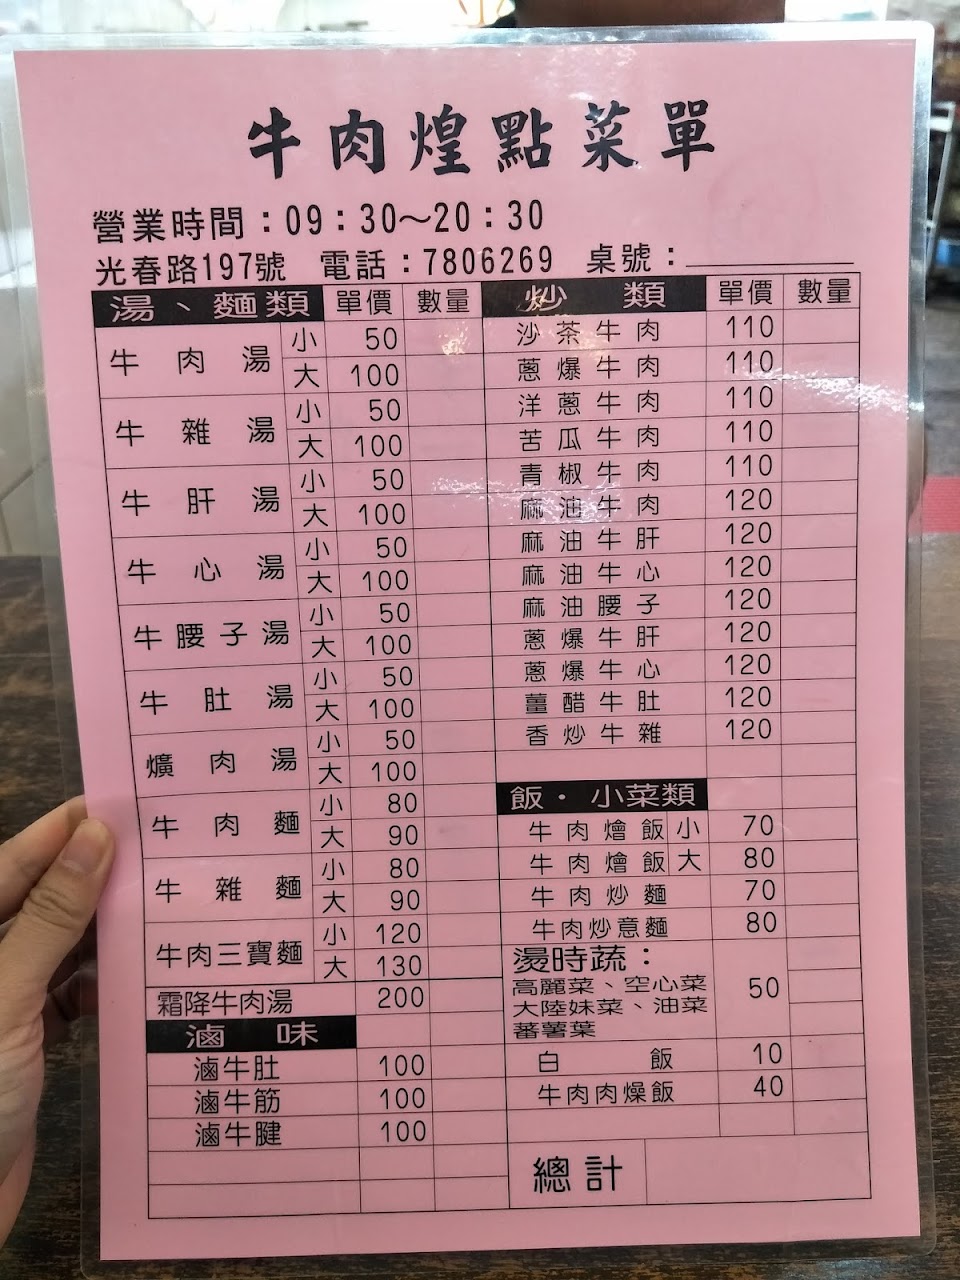 牛肉煌點菜單
營業時間：09：30～20：30
光春路197號 電話：7806269 桌號：
湯、麵類 單價 數量
牛肉湯 小 50
大 100
牛雜湯 小 50
大 100
牛肝湯 小 50
大 100
牛心湯 小 50
大 100
牛腰子湯 小 50
大 100
牛肚湯 小 50
大 100
爌肉湯 小 50
大 100
牛肉麵 小 80
大 90
牛雜麵 小 80
大 90
牛肉三寶麵 小 120
大 130
霜降牛肉湯 200
滷味
滷牛肚 100
滷牛筋 100
滷牛腱 100
炒類 單價 數量
沙茶牛肉 110
蔥爆牛肉 110
洋蔥牛肉 110
苦瓜牛肉 110
青椒牛肉 110
麻油牛肉 120
麻油牛肝 120
麻油牛心 120
麻油腰子 120
蔥爆牛肝 120
蔥爆牛心 120
薑醋牛肚 120
香炒牛雜 120
飯·小菜類
牛肉燴飯 小 70
牛肉燴飯 大 80
牛肉炒麵 70
牛肉炒意麵 80
燙時蔬：
高麗菜、空心菜 50
大陸妹菜、油菜
蕃薯葉
白飯 10
牛肉肉燥飯 40
總計